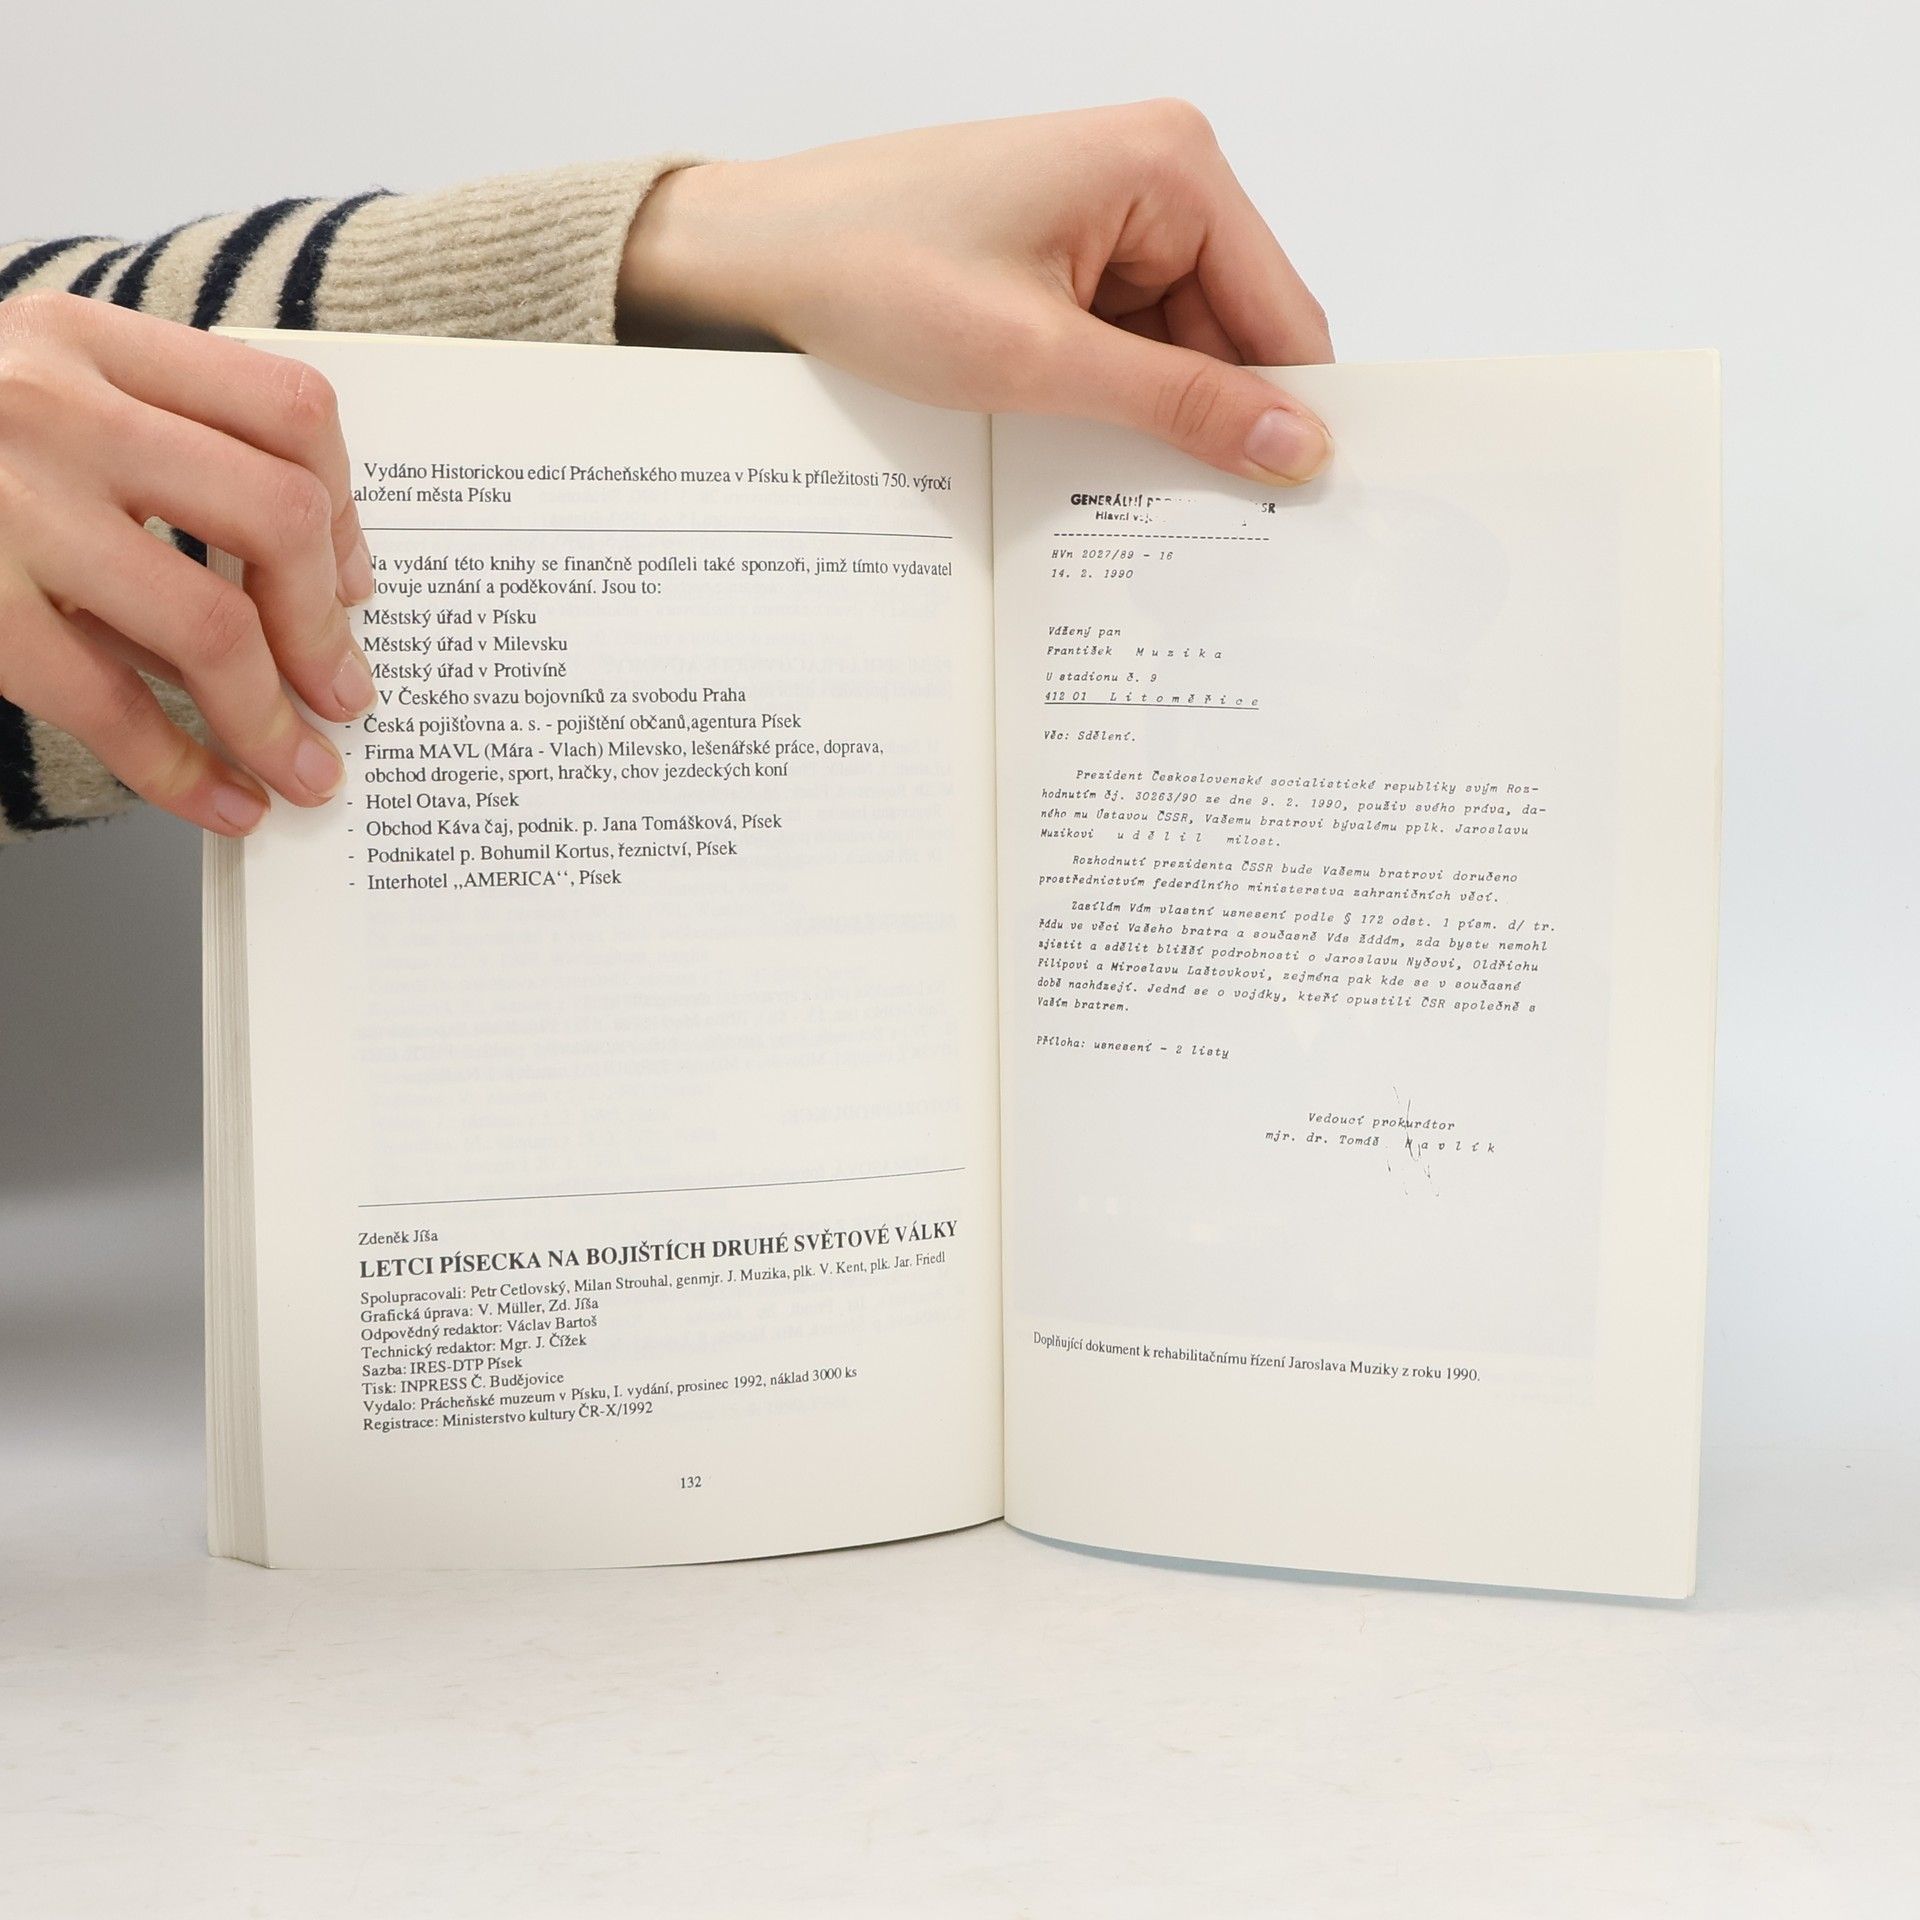 Vydáno Historickou edicí Prácheňského muzea v Písku k příležitosti 750. výročí
aložení města Písku
Na vydání této knihy se finančně podíleli také sponzoři, jimž tímto vydavatel
lovuje uznání a poděkování. Jsou to:
Městský úřad v Písku
Městský úřad v Milevsku
Městský úřad v Protivíně
V Českého svazu bojovníků za svobodu Praha
- Česká pojišťovna a. s. - pojištění občanů,agentura Písek
- Firma MAVL (Mára - Vlach) Milevsko, lešenářské práce, doprava,
obchod drogerie, sport, hračky, chov jezdeckých koní
- Hotel Otava, Písek
- Obchod Káva čaj, podnik. p. Jana Tomášková, Písek
- Podnikatel p. Bohumil Kortus, řeznictví, Písek
- Interhotel „AMERICA“, Písek
Zdeněk Jíša
LETCI PÍSECKA NA BOJIŠTÍCH DRUHÉ SVĚTOVÉ VÁLKY
Spolupracovali: Petr Cetlovský, Milan Strouhal, genmjr. J. Muzika, plk. V. Kent, plk. Jar. Friedl
Grafická úprava: V. Müller, Zd. Jíša
Odpovědný redaktor: Václav Bartoš
Technický redaktor: Mgr. J. Čížek
Sazba: IRES-DTP Písek
Tisk: INPRESS Č. Budějovice
Vydalo: Prácheňské muzeum v Písku, I. vydání, prosinec 1992, náklad 3000 ks
Registrace: Ministerstvo kultury ČR-X/1992
132
GENERÁLNÍ
Hlavní
HVn 2027/89 - 16
14. 2. 1990
Vážený pan
František M u z i k a
U stadionu č. 9
412 01 L i t o m ě ř i c e
Věc: Sdělení.
Prezident Československé socialistické republiky svým Roz-
hodnutím čj. 30263/90 ze dne 9. 2. 1990, použiv svého práva, da-
ného mu Ústavou ČSSR, Vašemu bratrovi bývalému pplk. Jaroslavu
Muzikovi u d ě l i l milost.
Rozhodnutí prezidenta ČSSR bude Vašemu bratrovi doručeno
prostřednictvím federálního ministerstva zahraničních věcí.
Zasílám Vám vlastní usnesení podle § 172 odst. 1 písm. d/ tr.
řádu ve věci Vašeho bratra a současně Vás žádám, zda byste nemohl
zjistit a sdělit bližší podrobnosti o Jaroslavu Nyčovi, Oldřichu
Filipovi a Miroslavu Laštovkovi, zejména pak kde se v současné
době nacházejí. Jedná se o vojáky, kteří opustili ČSR společně s
Vaším bratrem.
Příloha: usnesení - 2 listy
Vedoucí prokurátor
mjr. dr. Tomáš H a v l í k
Doplňující dokument k rehabilitačnímu řízení Jaroslava Muziky z roku 1990.